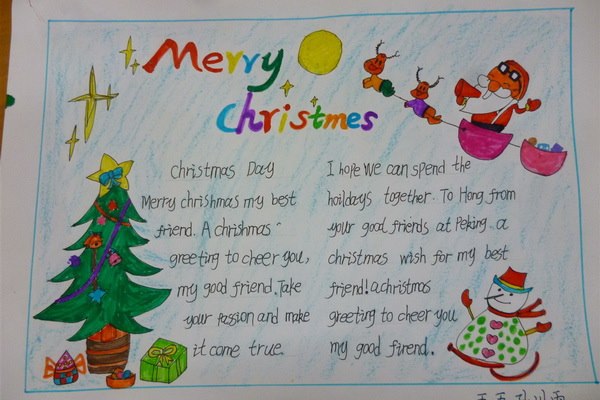 Merry
christmes
christmas Day
Merry chrishmas my best
friend. A chrishmas
greeting to cheer you,
my good friend. Take
your fassion and make
it come true.
I hope we can spend the
hoildays together. To Hong from
your good friends at Peking. a
christmas wish for my best
friend! a christmas
greeting to cheer you
my good firend.